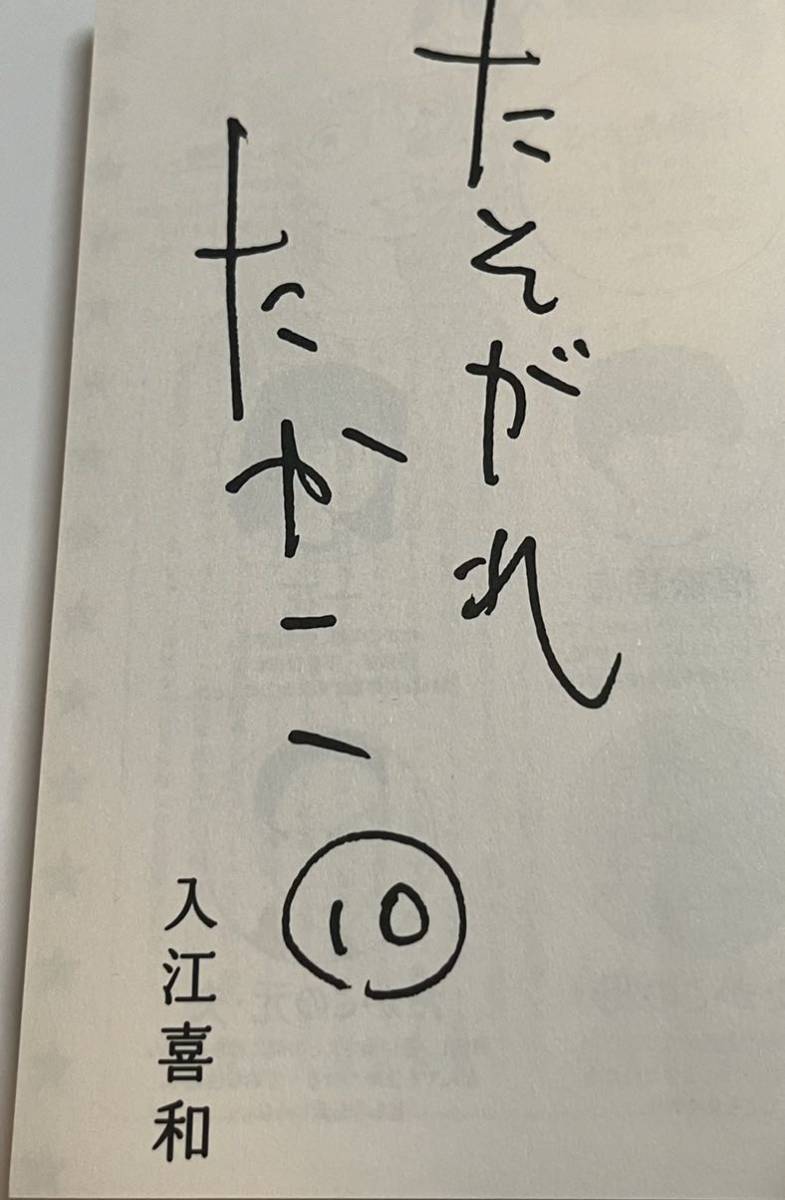 たそがれ
たかこ
⑩
入江喜和